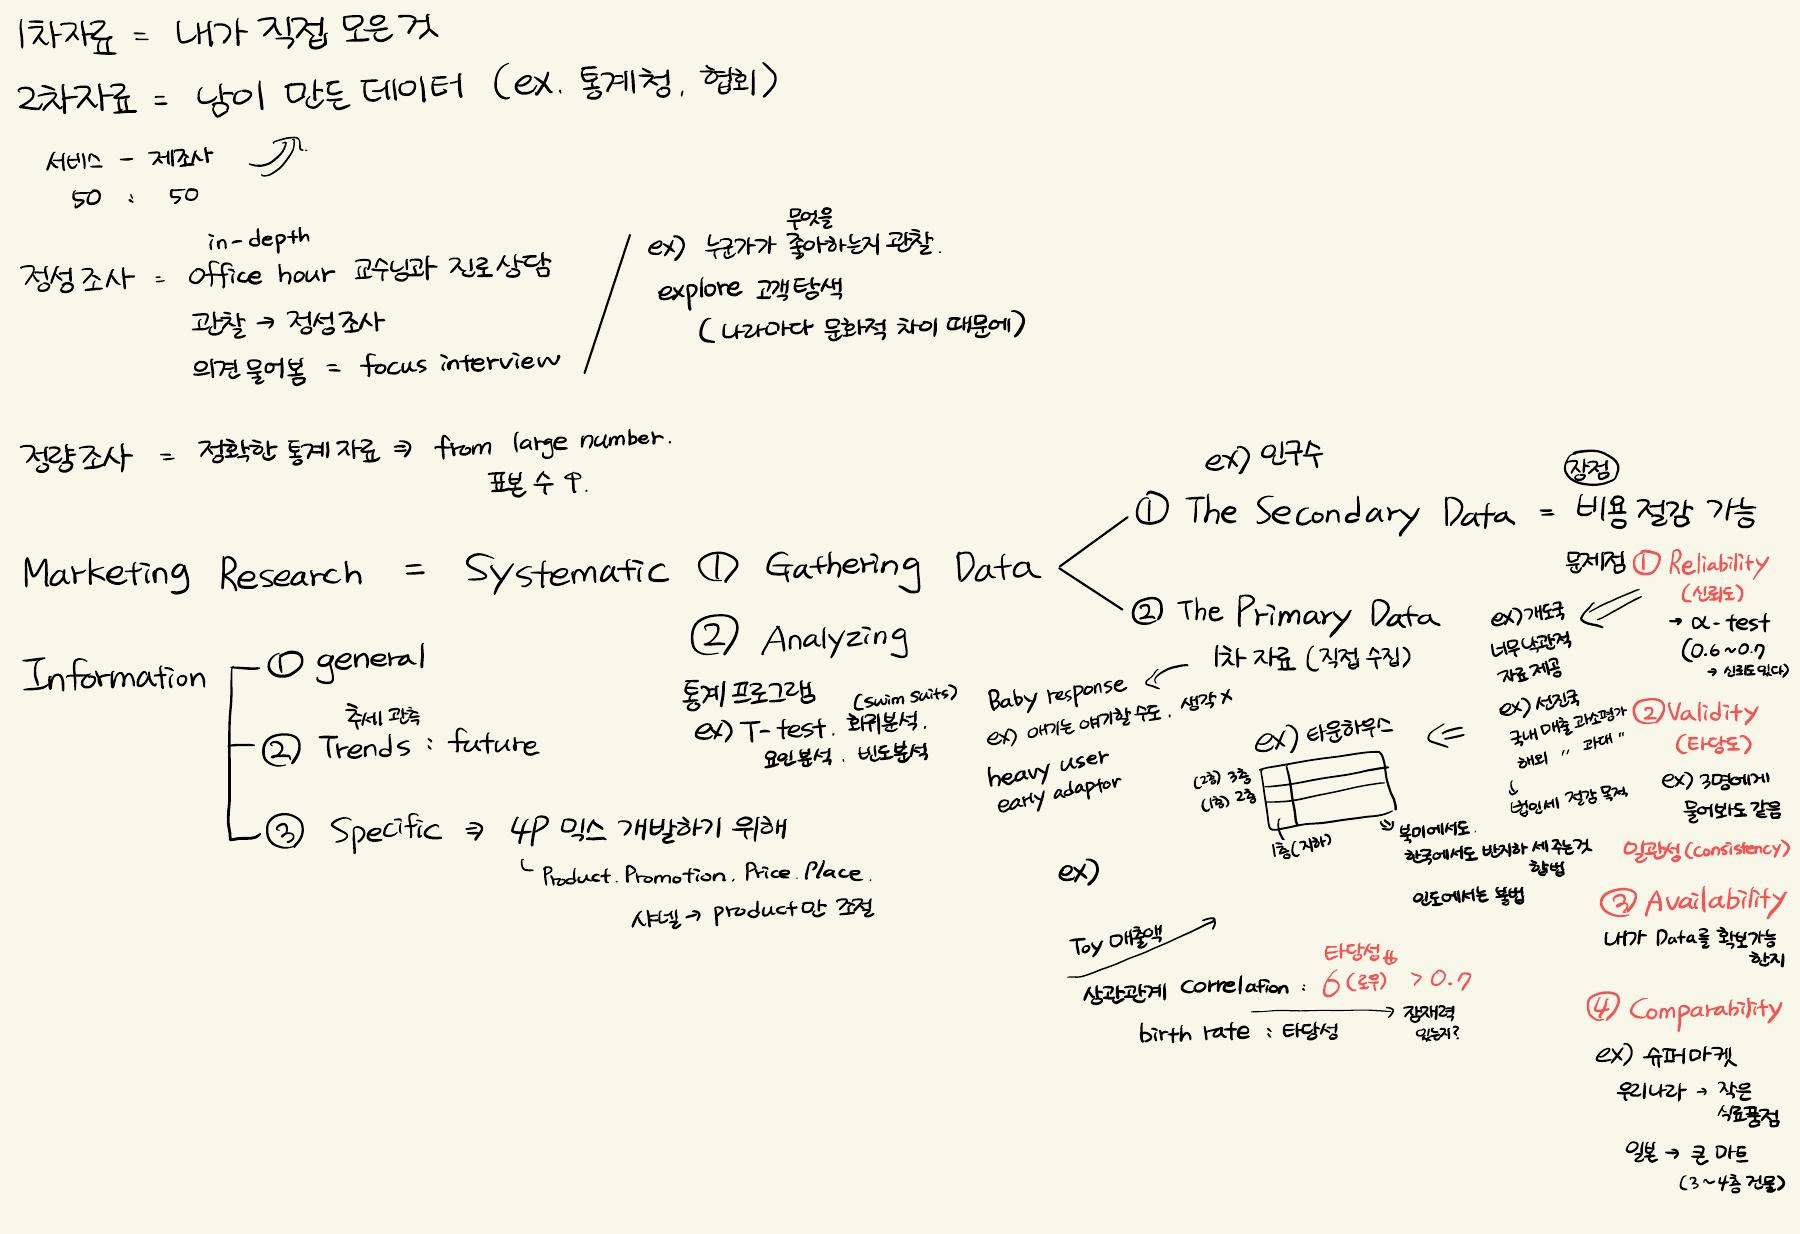 1차자료 = 내가 직접 모은 것
2차자료 = 남이 만든 데이터 (ex. 통계청, 협회)
서비스 - 제조사
50 : 50
in-depth
정성조사 = office hour 교수님과 진로상담
관찰 → 정성조사
의견 물어봄 = focus interview
무엇을
ex) 누군가가 좋아하는지 관찰.
explore 고객탐색
(나라마다 문화적 차이 때문에)
정량조사 = 정확한 통계자료 ⇒ from large number.
표본 수 ↑.
Marketing Research = Systematic ① Gathering Data
② Analyzing
통계 프로그램
(swim suits)
ex) T-test. 회귀분석.
요인분석. 빈도분석
Information
① general
추세 관측
② Trends : future
③ Specific ⇒ 4P 믹스 개발하기 위해
Product. Promotion. Price. Place.
샤넬 → product만 조절
ex) 인구수
장점
① The Secondary Data = 비용 절감 가능
문제점 ① Reliability
(신뢰도)
→ α-test
(0.6~0.7
→ 신뢰도있다)
ex) 개도국
너무 낙관적
자료 제공
② Validity
(타당도)
ex) 선진국
국내 매출 과소평가
해외 〃 과대 〃
↓
법인세 절감 목적
ex) 3명에게
물어봐도 같음
일관성(consistency)
③ Availability
내가 Data를 확보가능
한지
④ Comparability
ex) 슈퍼마켓
우리나라 → 작은
식료품점
일본 → 큰 마트
(3~4층 건물)
② The Primary Data
1차 자료 (직접 수집)
Baby response
ex) 애기는 얘기할 수도. 생각 X
heavy user
early adaptor
ex) 타운하우스
(2층) 3층
(1층) 2층
1층(지하)
북미에서도.
한국에서도 반지하 세 주는것
합법
인도에서는 불법
ex)
Toy 매출액
타당성
상관관계 correlation : 6 (로우) > 0.7
birth rate : 타당성
잠재력
있는지?